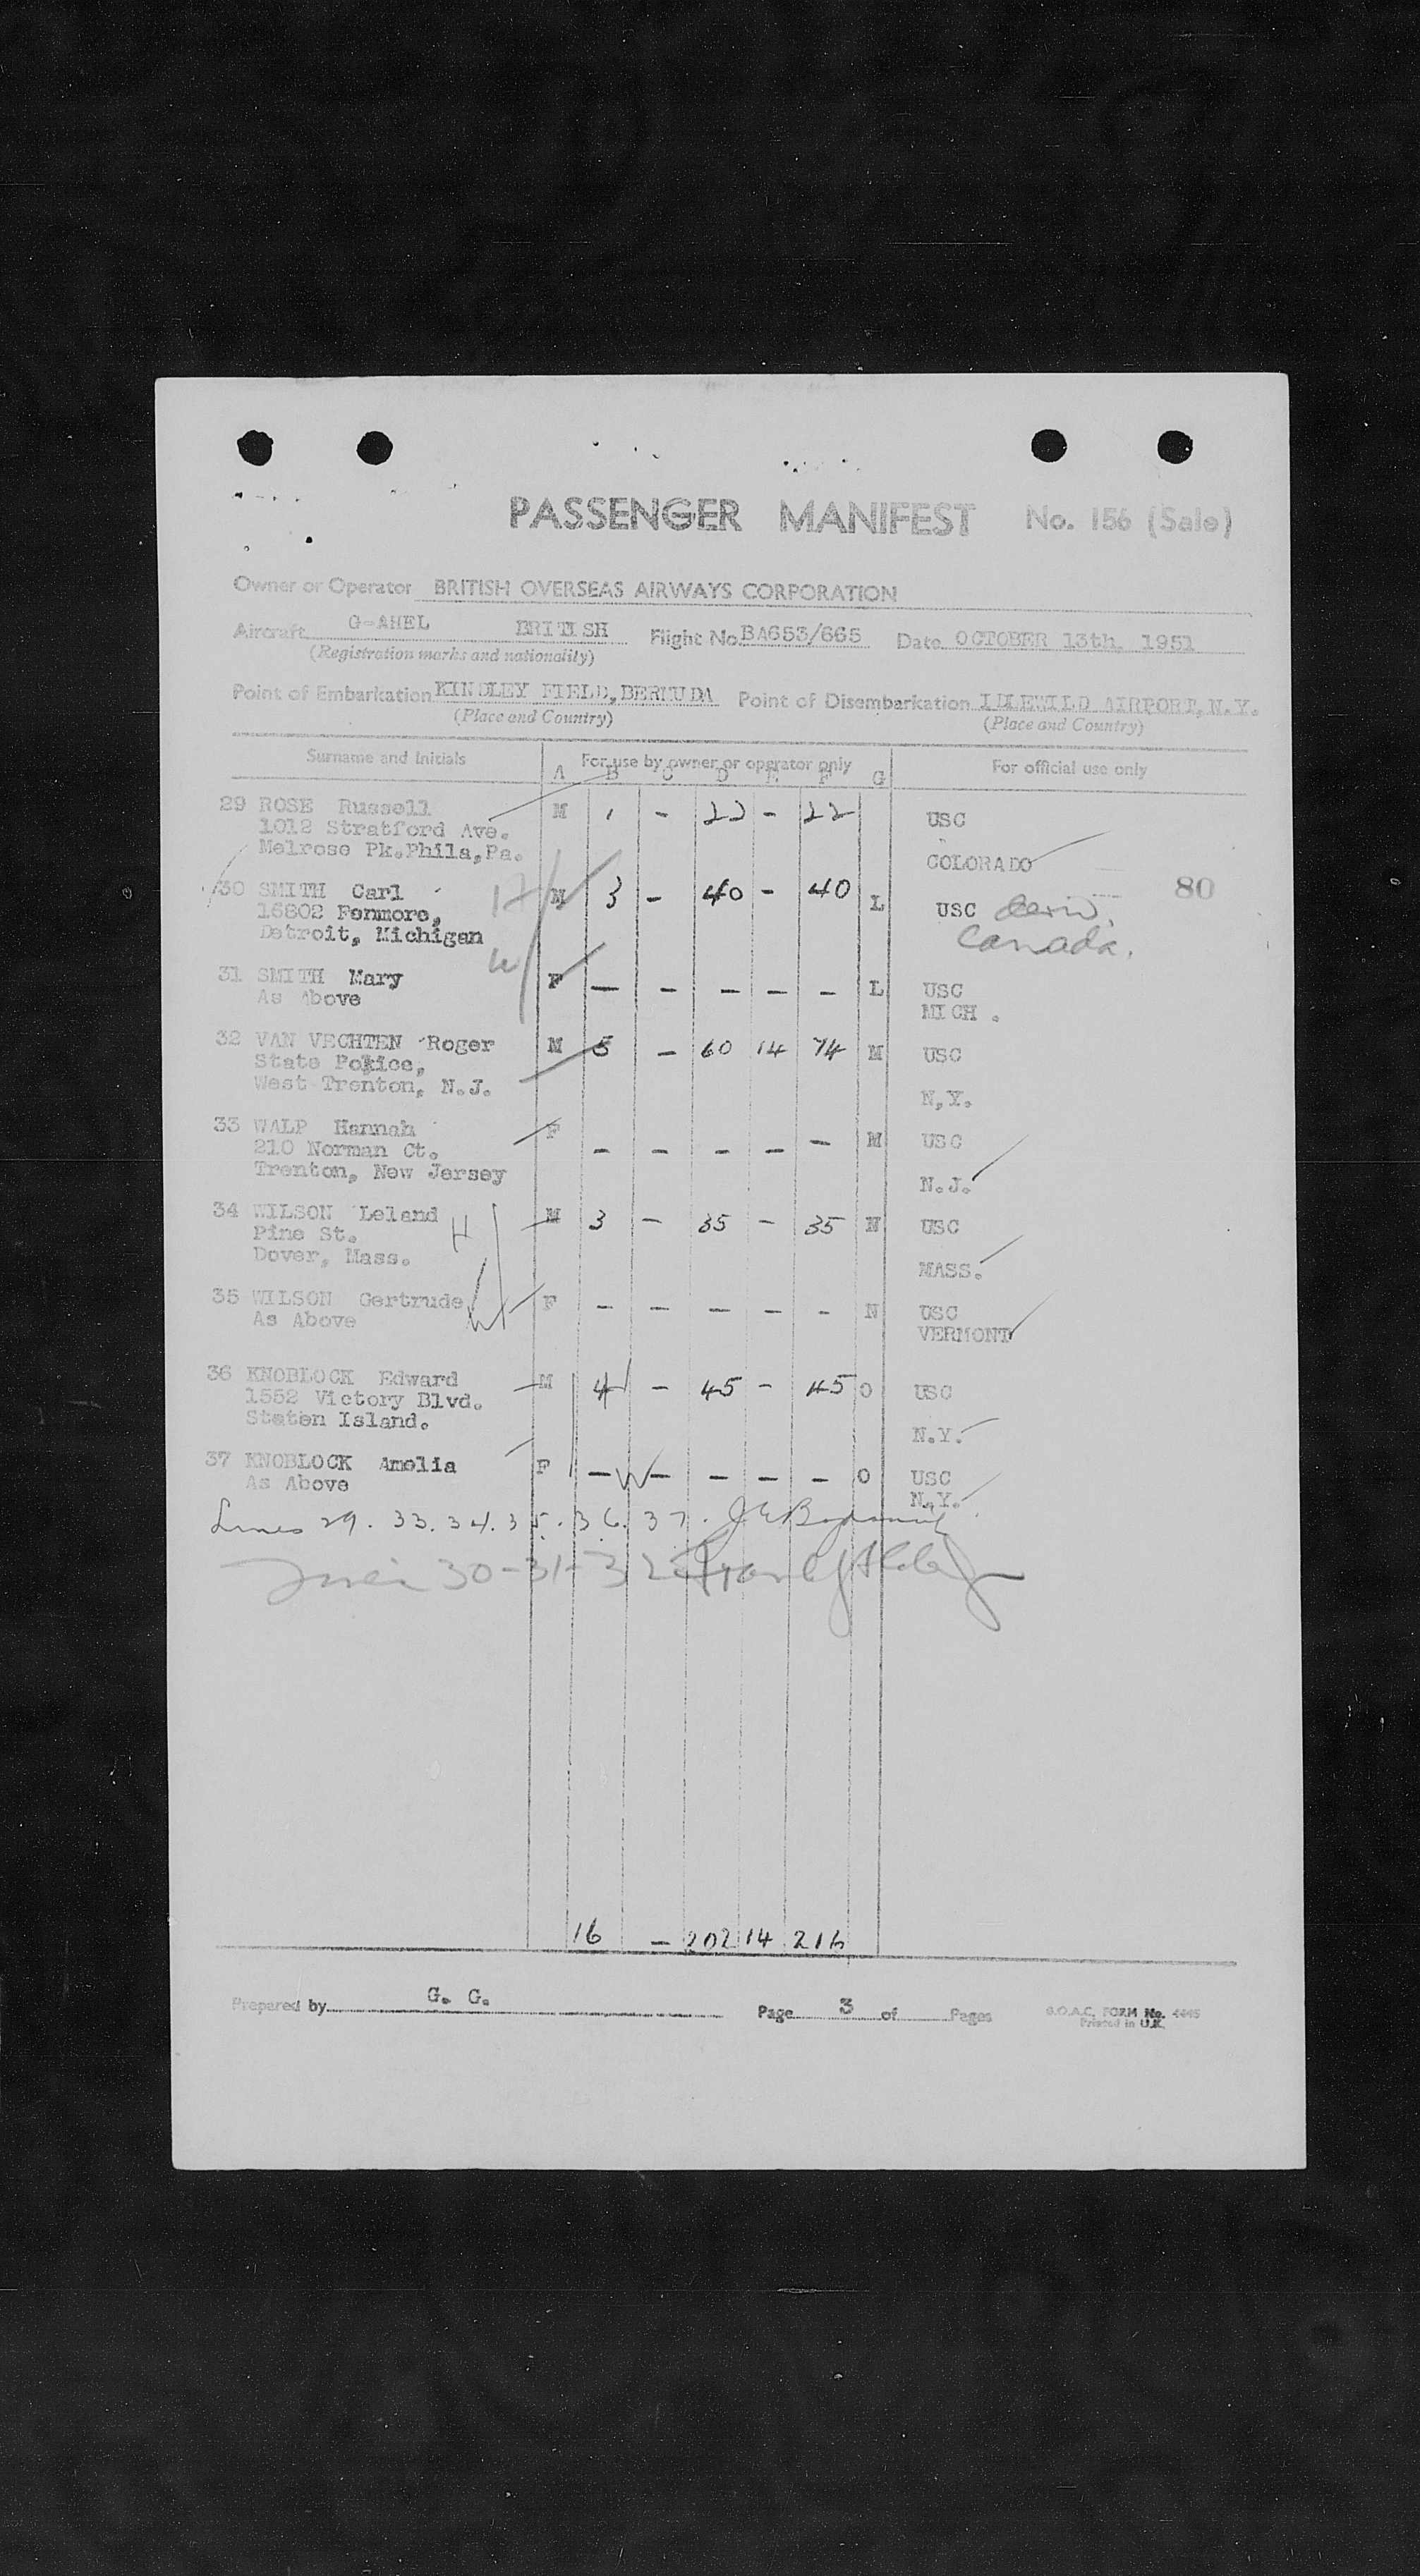 PASSENGER MANIFEST No. 156 (Sale)
Owner or Operator BRITISH OVERSEAS AIRWAYS CORPORATION
Aircraft G-AHEL BRITISH Flight No. BA653/665 Date OCTOBER 13th, 1951
(Registration marks and nationality)
Point of Embarkation KINDLEY FIELD, BERMUDA Point of Disembarkation IDLEWILD AIRPORT, N.Y.
(Place and Country) (Place and Country)
Surname and Initials For use by owner or operator only For official use only
A B C D E F G
29 ROSE Russell M 1 - 22 - 22 USC
1012 Stratford Ave.
Melrose Pk.Phila,Pa. COLORADO
30 SMITH Carl H M 3 - 40 - 40 L USC 80
15802 Fenmore, Canada.
Detroit, Michigan
W
31 SMITH Mary F - - - - - L USC
As Above MICH .
32 VAN VECHTEN Roger M 5 - 60 14 74 M USC
State Police,
West Trenton, N.J. N,Y.
33 WALP Hannah F - - - - - M USC
210 Norman Ct.
Trenton, New Jersey N.J.
34 WILSON Leland H M 3 - 35 - 35 N USC
Pine St.
Dover, Mass. MASS.
35 WILSON Gertrude W F - - - - - N USC
As Above VERMONT
36 KNOBLOCK Edward M 4 - 45 - 45 O USC
1552 Victory Blvd.
Staten Island. N.Y.
37 KNOBLOCK Amelia F - W - - - - O USC
As Above N.Y.
Lines 29. 33. 34. 35. 36. 37.
30-31-32
16 - 202 14 216
Prepared by G. G. Page 3 of Pages B.O.A.C. FORM No. 4445
Printed in U.K.